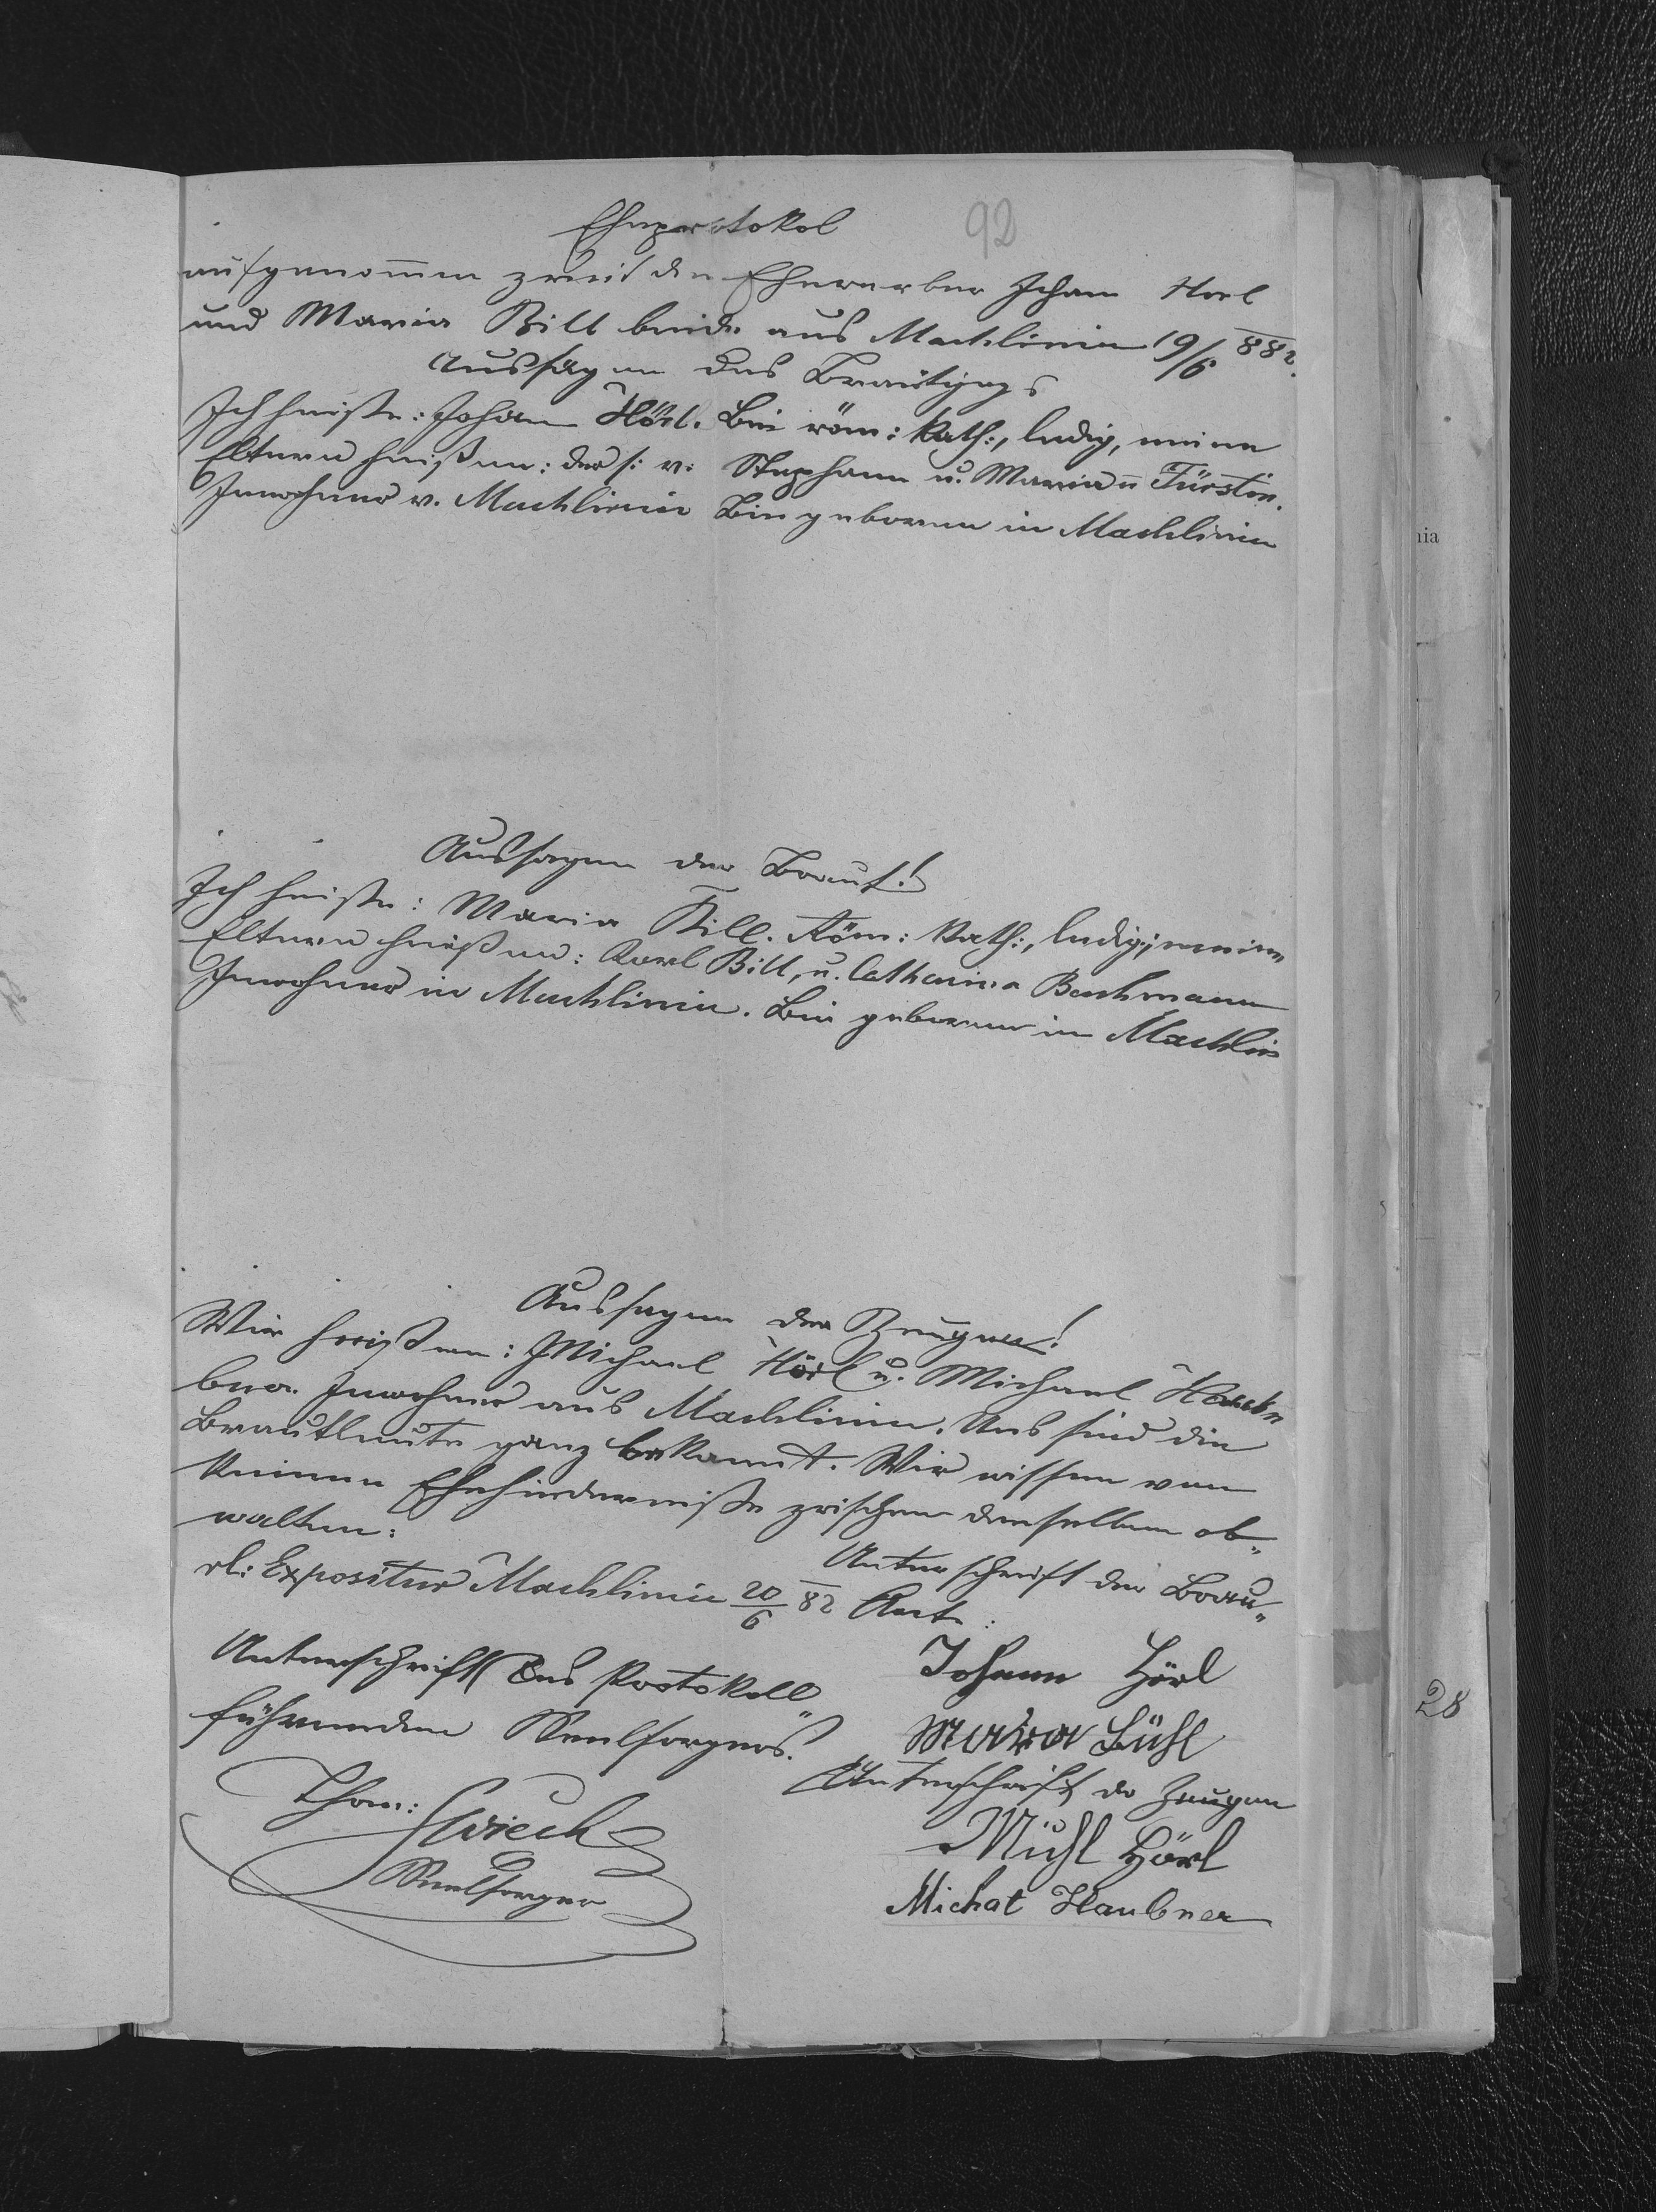 Eheprotokol
92
aufgenommen zweis der Ehewerber Johann Hoel
und Maria Bill beide aus Machlinia 19/6 882.
Aussagen des Bräutigs
Ich heiße: Johann Hörl. Bin röm: kath:, ledig, meine
Eltern heißen: der s: v: Stephann u. Maria Fürstin.
Inwohner v. Machlinia Bin geboren in Machlinia
Aussagen der Braut!
Ich heiße: Maria Bill. Röm: kath:, ledig; meine
Eltern heißen: Karl Bill, u. Catharina Bachmann
Inwohner in Machlinia. Bin geboren in Machlin
Aussagen der Zeugen!
Wir heißen: Michael Hörl u. Michael Haub
ner Inwohner aus Machlinia. Uns sind die
Brautleute ganz bekannt. Wir wissen von
keinen Ehehinderniße zwischen denselben ob„
walten:
Unterschrift der Brau„
rl: Expositur Machlinia 20/6 82
Johann Hörl
Unterschrift des Protokoll
führenden Seelsorgers.
Maria Bühl
Unterschrift der Zeugen
Thom: Swiech
Seelsorger
Michl Hörl
Michał Haubner
nia
28